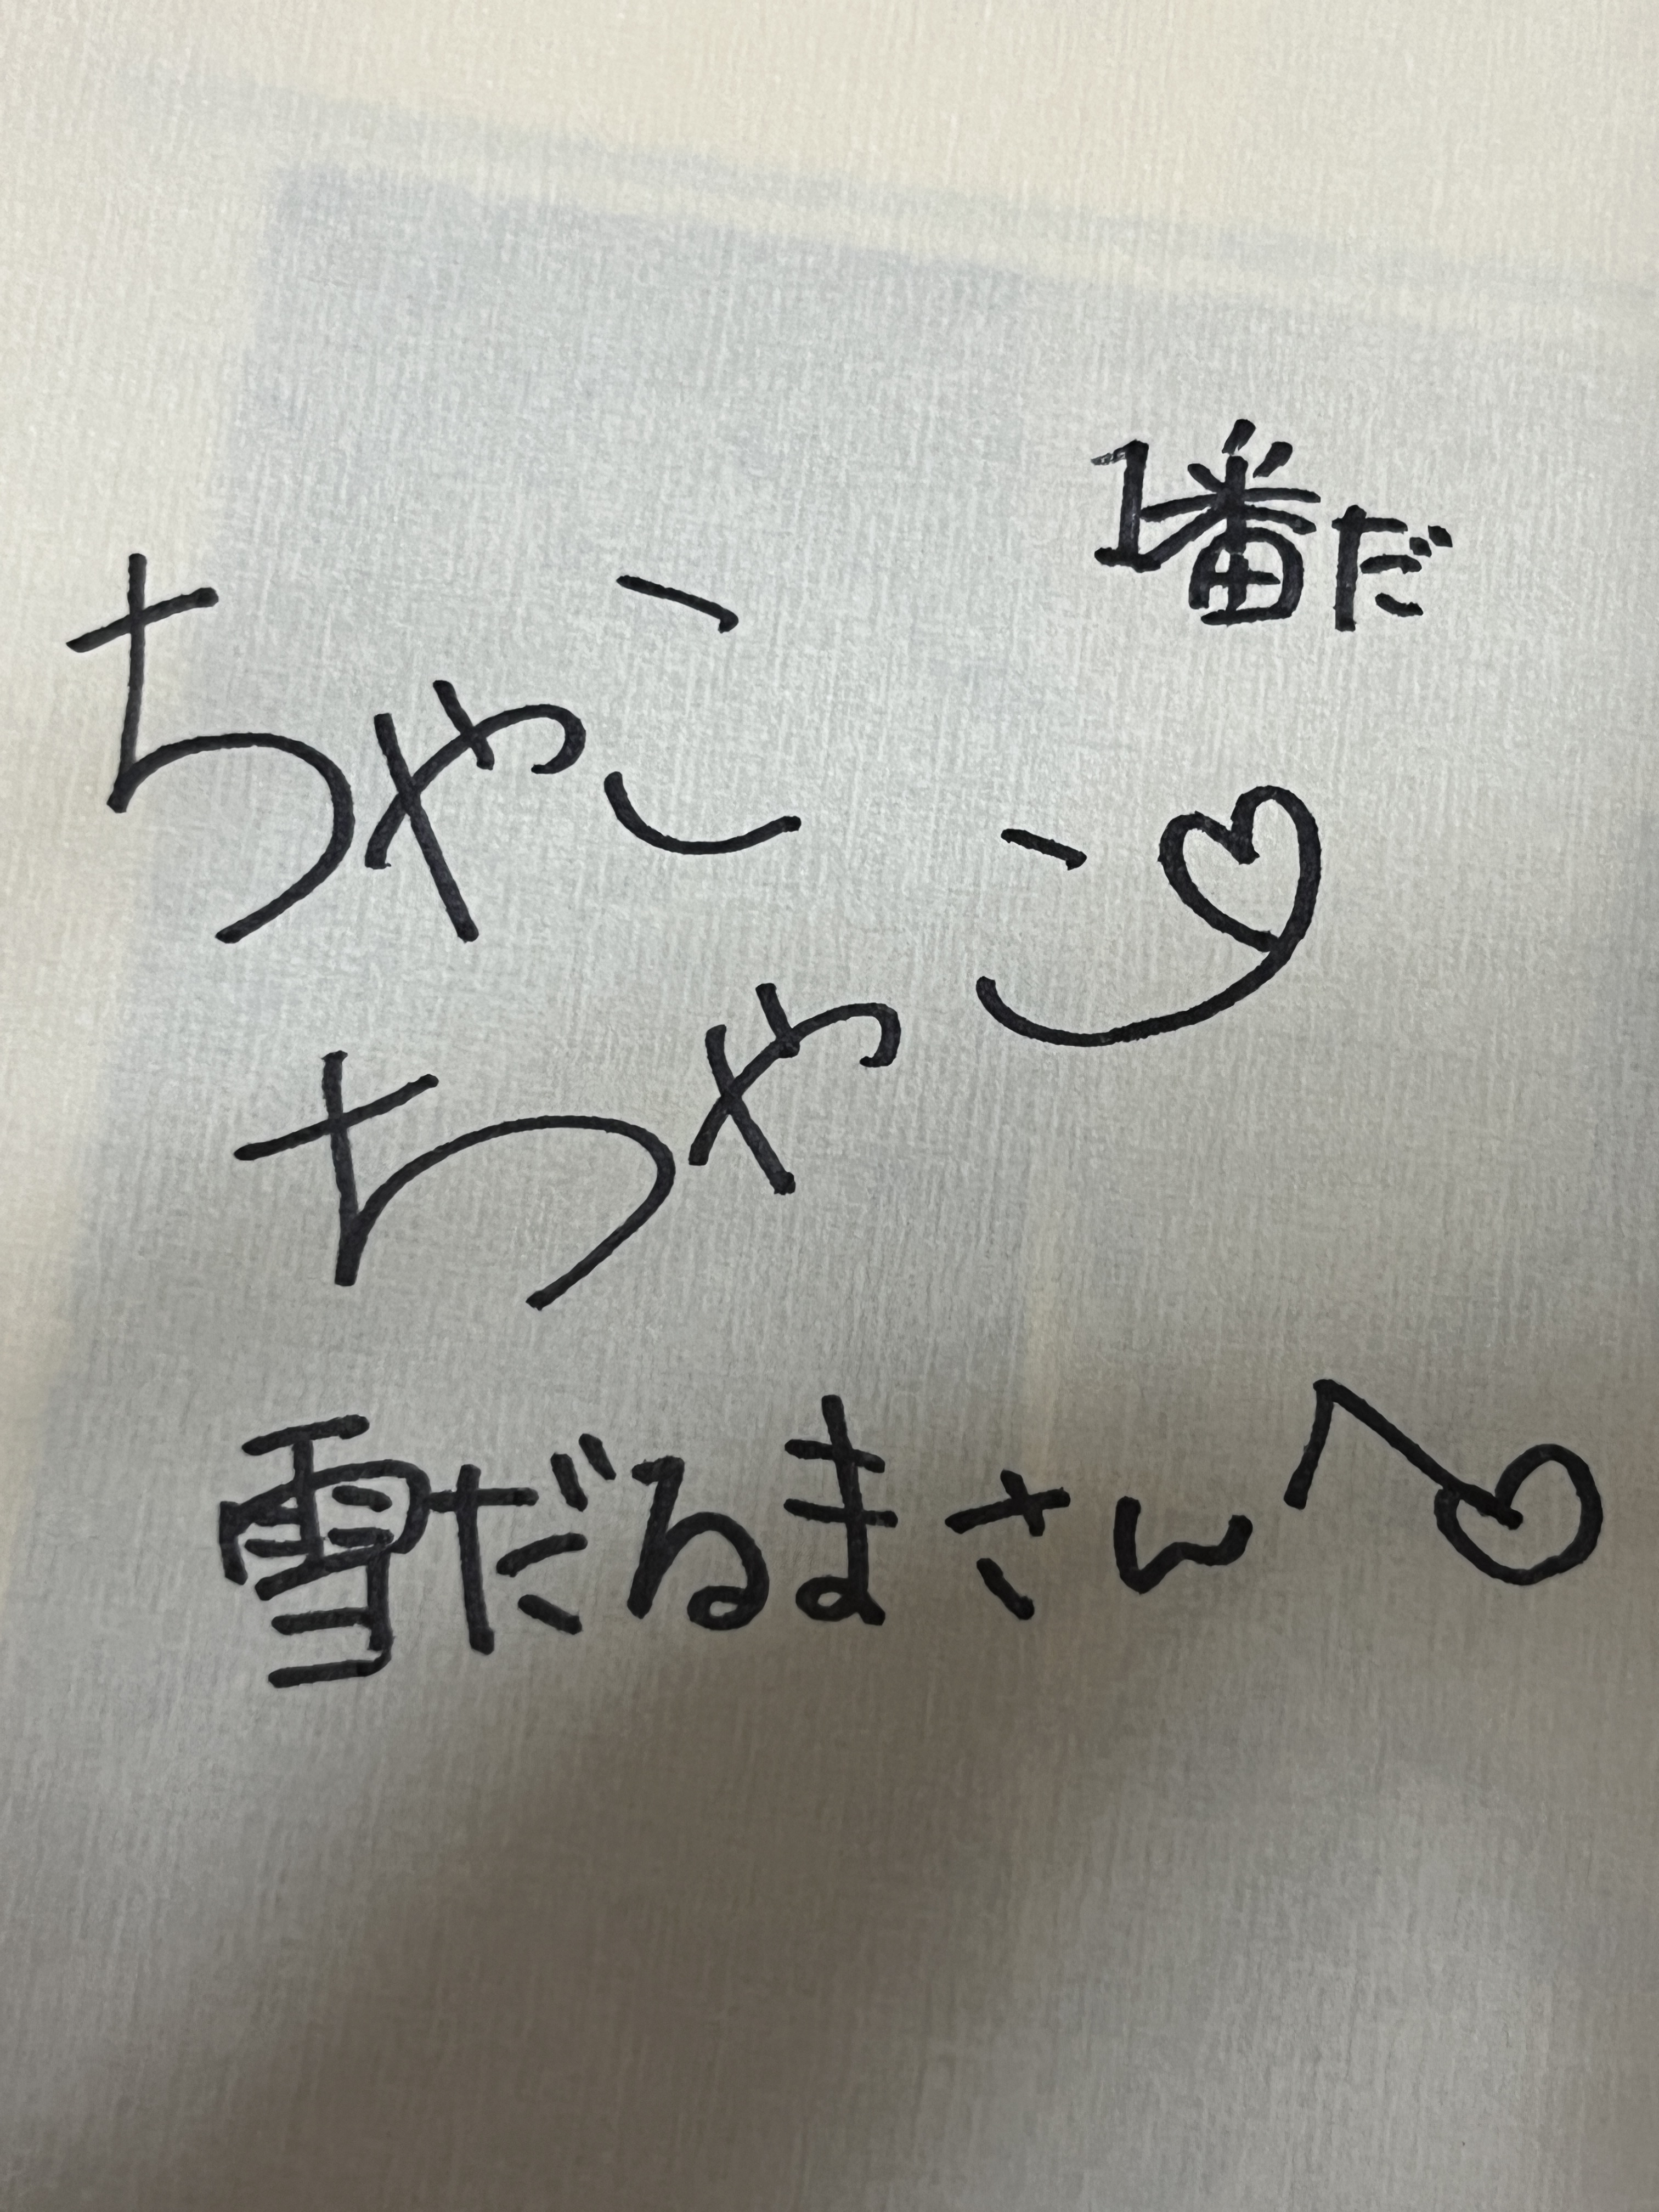 1番だ
ちゃこ
ちゃこ♡
雪だるまさんへ♡